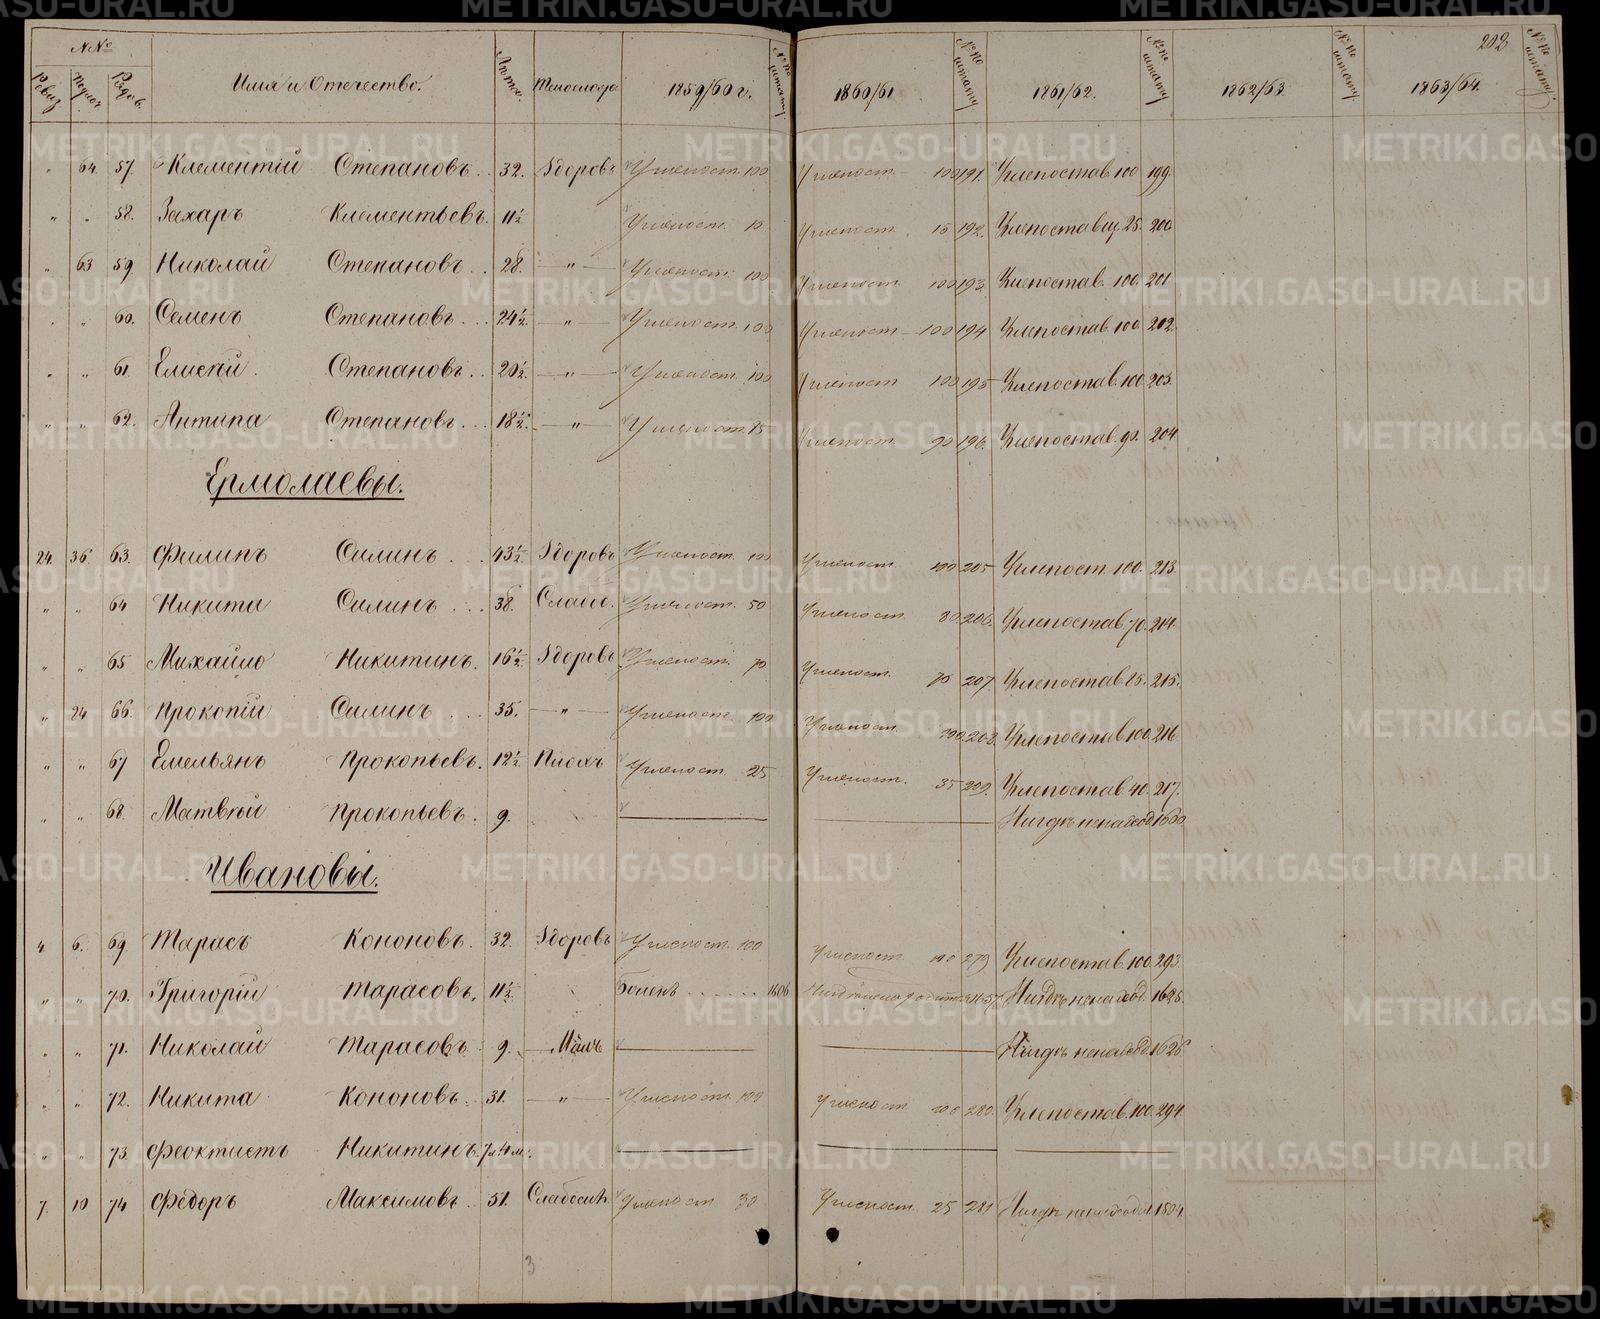 NN° 202
Ревиз. Порядк. Родов. Имя и Отечество. Лета. Телослож. 1859/60 г. №№ по штату 1860/61 №№ по штату 1861/62. №№ по штату 1862/63. №№ по штату. 1863/64. №№ по штату.
" 64. 57. Клементій Степановъ . . 32. Здоровъ Углепост. 100 Углепост. 100 191. Углепостав. 100 199.
" " 58. Захаръ Клементьевъ. 11½ Углепост. 10 Углепост. 15 192. Углепоставщ. 25. 200.
" 63 59. Николай Степановъ . . 28. — " — Углепост. 100 Углепост. 100 193. Углепостав. 100. 201.
" " 60. Семенъ Степановъ . . . 24½. — " — Углепост. 100 Углепост. 100 194 Углепостав. 100. 202.
" " 61 Елисей. Степановъ . . 20½. — " — Углепост. 100 Углепост. 100 195 Углепостав. 100. 203.
" " 62. Антипа Степановъ . . . 18½. — " — Углепост. 75 Углепост. 90 196. Углепостав. 90. 204.
Ермолаевы.
24. 36 63. Филипъ Силинъ . . 43½. Здоровъ Углепост. 100 Углепост. 100 205 Углепост. 100. 213.
" " 64 Никита Силинъ . . . 38. Слабос. Углепост. 50 Углепост. 80 206. Углепостав. 70. 214.
" " 65 Михайло Никитинъ. 16½. Здоровъ Углепост. 70 Углепост. 70 207 Углепостав. 215.
" 24 66. Прокопій Силинъ . . . 35. — " — Углепост. 100 Углепост. 100 208. Углепостав. 100. 216
" " 67 Емельянъ Прокопьевъ. 12½ Плохъ Углепост. 25 Углепост. 35 209. Углепостав. 40. 217.
" " 68. Матвѣй Прокопьевъ. 9. Нигдѣ ненаход.
Ивановы.
4 6. 69. Тарасъ Кононовъ. 32. Здоровъ Углепост. 100 Углепост. 100 279 Углепостав. 100. 293.
" " 70. Григорій Тарасовъ. 11½. Боленъ . . . . . . 1606 Нигдѣ ненаход. 1625.
" " 71. Николай Тарасовъ 9. Малъ Нигдѣ ненаход. 1626
" " 72. Никита Кононовъ . . 31. — " — Углепост. 100 Углепост. 100 280. Углепостав. 100. 294.
" " 73. Феоктистъ Никитинъ. 7 л. 4 м.
7. 10 74 Федоръ Максимовъ . . 51. Слабосил. Углепост. 30 Углепост. 25 281 Нигдѣ ненаход. 1504.
3
METRIKI.GASO-URAL.RU